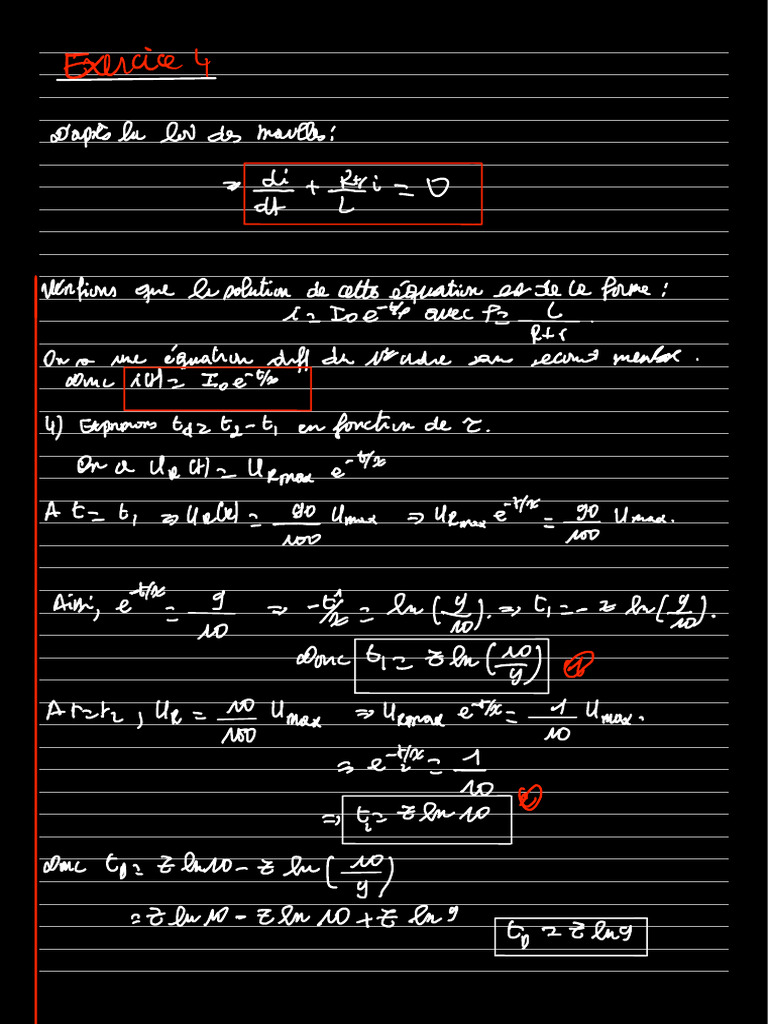 Exercice 4
D'après la loi des mailles :
⇒ di/dt + (R+r)/L i = 0
Vérifions que la solution de cette équation est de la forme :
i = I₀ e^(-t/ρ) avec ρ = L/(R+r).
On a une équation diff du 1er ordre sans second membre.
Donc i(t) = I₀ e^(-t/τ)
4) Exprimons t_d = t₂ - t₁ en fonction de τ.
On a U_R(t) = U_Rmax e^(-t/τ)
A t = t₁ ⇒ U_R(t) = 90/100 U_max ⇒ U_Rmax e^(-t/τ) = 90/100 U_max.
Ainsi, e^(-t/τ) = 9/10 ⇒ -t₁/τ = ln(9/10). ⇒ t₁ = -τ ln(9/10).
Donc t₁ = τ ln(10/9) ①
A t = t₂, U_R = 10/100 U_max ⇒ U_Rmax e^(-t/τ) = 1/10 U_max.
⇒ e^(-t₂/τ) = 1/10
⇒ t₂ = τ ln 10 ②
Donc t_D = τ ln 10 - τ ln(10/9)
= τ ln 10 - τ ln 10 + τ ln 9
t_D = τ ln 9